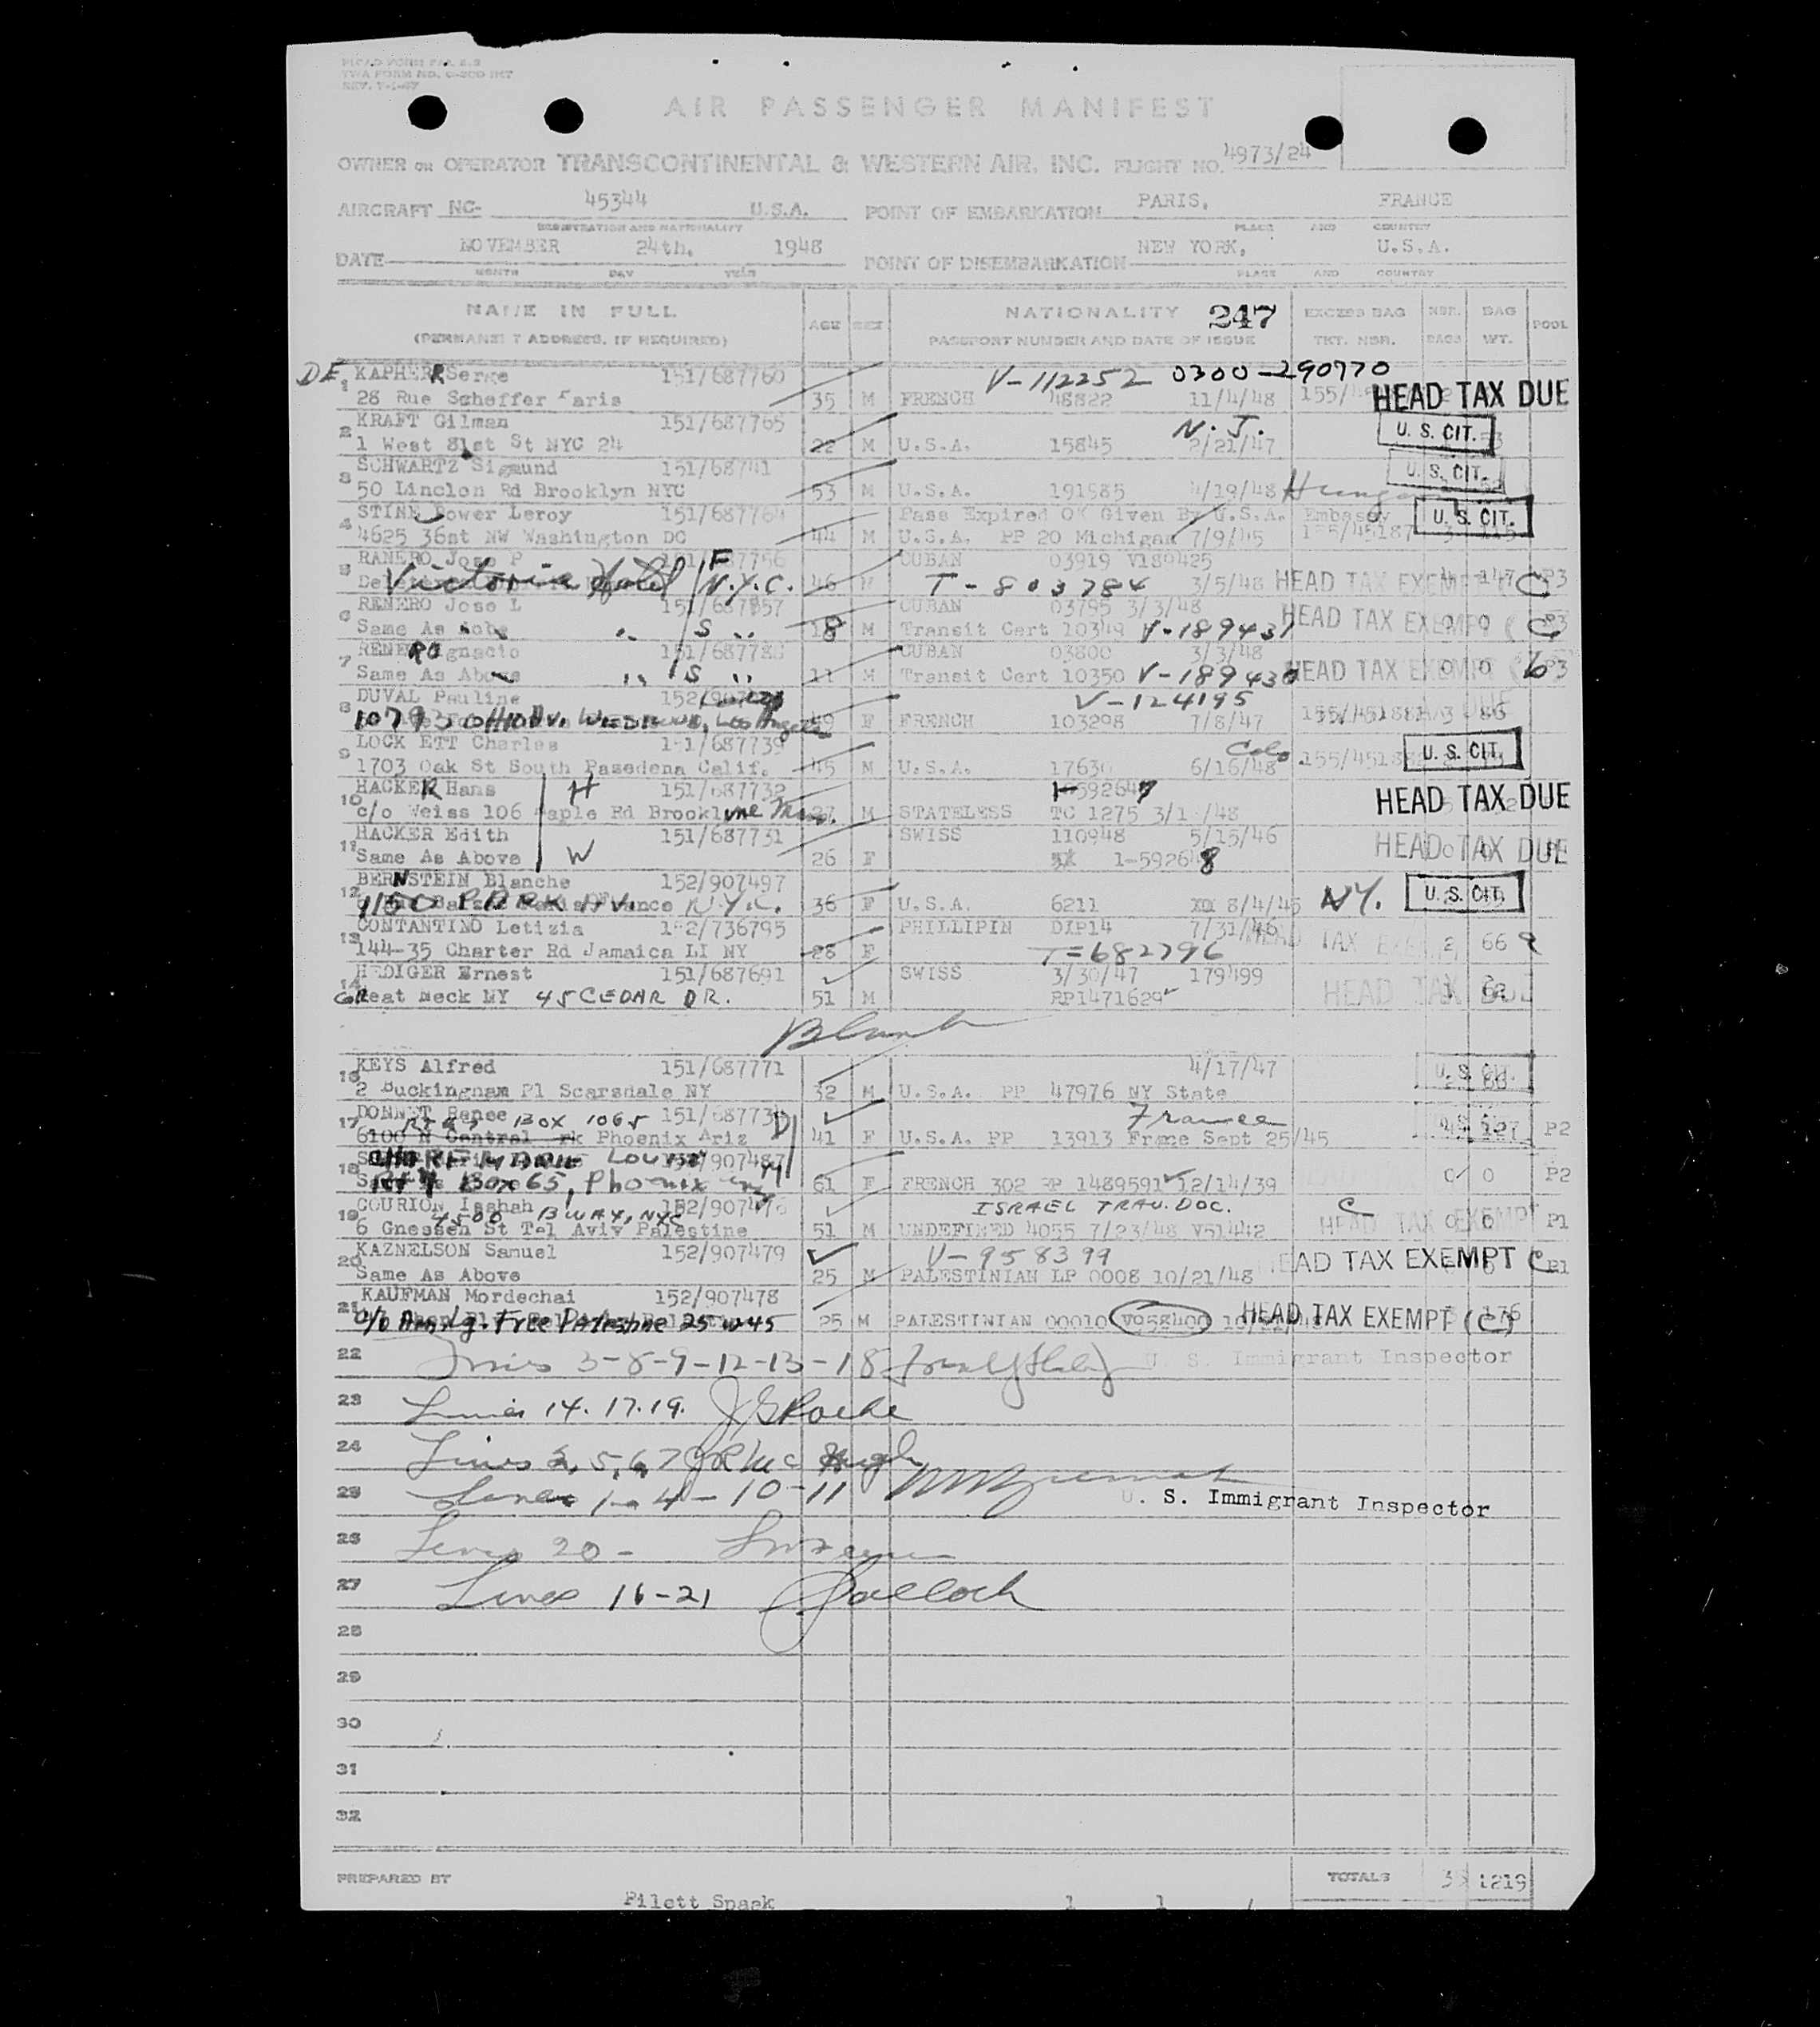 TWA FORM NO. O-200 INT
REV. 7-1-47
AIR PASSENGER MANIFEST
OWNER OR OPERATOR TRANSCONTINENTAL & WESTERN AIR, INC. FLIGHT NO. 4973/24
AIRCRAFT NC- 45344 U.S.A. POINT OF EMBARKATION PARIS, FRANCE
REGISTRATION AND NATIONALITY PLACE AND COUNTRY
DATE NOVEMBER 24th, 1948 POINT OF DISEMBARKATION NEW YORK, U.S.A.
MONTH DAY YEAR PLACE AND COUNTRY
NAME IN FULL AGE SEX NATIONALITY 247 EXCESS BAG NBR. BAG POOL
(PERMANENT ADDRESS, IF REQUIRED) PASSPORT NUMBER AND DATE OF ISSUE TKT. NBR. BAGS WT.
DE 1 KAPHERR Serge 151/687760 V-112252 0300-290770
28 Rue Scheffer Paris 35 M FRENCH 48822 11/4/48 155/ HEAD TAX DUE
2 KRAFT Gilman 151/687765 N.J. U. S. CIT.
1 West 81st St NYC 24 22 M U.S.A. 15845 2/21/47
3 SCHWARTZ Sigmund 151/68741 U. S. CIT.
50 Linclon Rd Brooklyn NYC 53 M U.S.A. 191985 4/19/48
4 STINE Power Leroy 151/687764 Pass Expired OK Given By U.S.A. Embassy U. S. CIT.
4625 36st NW Washington DC 44 M U.S.A. PP 20 Michigan 7/9/45 155/45187 3 115
5 RANERO Jose P 151/687756 F CUBAN 03919 V189425
Victoria Hotel N.Y.C. 46 M T-803784 3/5/48 HEAD TAX EXEMPT (C) 147 P3
6 RENERO Jose L 151/687757 CUBAN 03795 3/3/48
Same As Above " S " 18 M Transit Cert 10349 V-189431 HEAD TAX EXEMPT (C) 0 0 P3
7 RENERO Ignacio 151/687788 CUBAN 03800 3/3/48
Same As Above " S " 11 M Transit Cert 10350 V-189430 HEAD TAX EXEMPT 0 0 P3
8 DUVAL Pauline V-124195
49 F FRENCH 103298 7/8/47 155/451881 3 86
9 LOCK ETT Charles 151/687739 Colo. U. S. CIT.
1703 Oak St South Pasedena Calif. 45 M U.S.A. 17630 6/16/48
10 HACKER Hans H 151/687732 I-592647
c/o Weiss 106 Maple Rd Brookline Mass. 27 M STATELESS TC 1275 HEAD TAX DUE
11 HACKER Edith 151/687731 SWISS 110948 5/15/46
Same As Above W 26 F 1-592648 HEAD TAX DUE
12 BERNSTEIN Blanche 152/907497
1150 PARK AV. N.Y.C. 36 F U.S.A. 6211 8/4/45 NY. U. S. CIT.
13 CONTANTINO Letizia 152/736795 PHILLIPIN DIP14 7/31/46
144-35 Charter Rd Jamaica LI NY 28 F T=682796 HEAD TAX EXEMPT 2 66
14 HEDIGER Ernest 151/687691 SWISS 3/30/47 179499
Great Neck NY 45 CEDAR DR. 51 M RP1471629 HEAD TAX DUE
Blank
16 KEYS Alfred 151/687771 4/17/47 U. S. CIT.
2 Buckingham Pl Scarsdale NY 32 M U.S.A. PP 47976 NY State
17 DONNET Renee BOX 1065 France
6100 N Central Phoenix Ariz 41 F U.S.A. PP 13913 France Sept 25/45 127 P2
18 MARIE LOUISE 152/907487
RT 4 BOX 65, Phoenix 61 F FRENCH 302 PP 1489591 12/14/39 0 0 P2
19 COURION Isahah 4500 BWAY, NYC 152/907476 ISRAEL TRAV. DOC.
6 Gnessen St Tel Aviv Palestine 51 M UNDEFINED 4055 7/23/48 V51442 HEAD TAX EXEMPT C 0 0 P1
20 KAZNELSON Samuel 152/907479 V-958399
Same As Above 25 M PALESTINIAN LP 0008 10/21/48 HEAD TAX EXEMPT (C) P1
21 KAUFMAN Mordechai 152/907478
Free Palestine 25 W 45 25 M PALESTINIAN 00010 V958400 HEAD TAX EXEMPT (C) 176
22 Lines 3-8-9-12-13-18 U. S. Immigrant Inspector
23 Lines 14.17.19. Roche
24 Lines 2, 5, 6, 7 J R McHugh
25 Lines 1-4-10-11 U. S. Immigrant Inspector
26 Lines 20-
27 Lines 16-21
28
29
30
31
32
PREPARED BY TOTALS 1219
Pilett Spaak 1 1